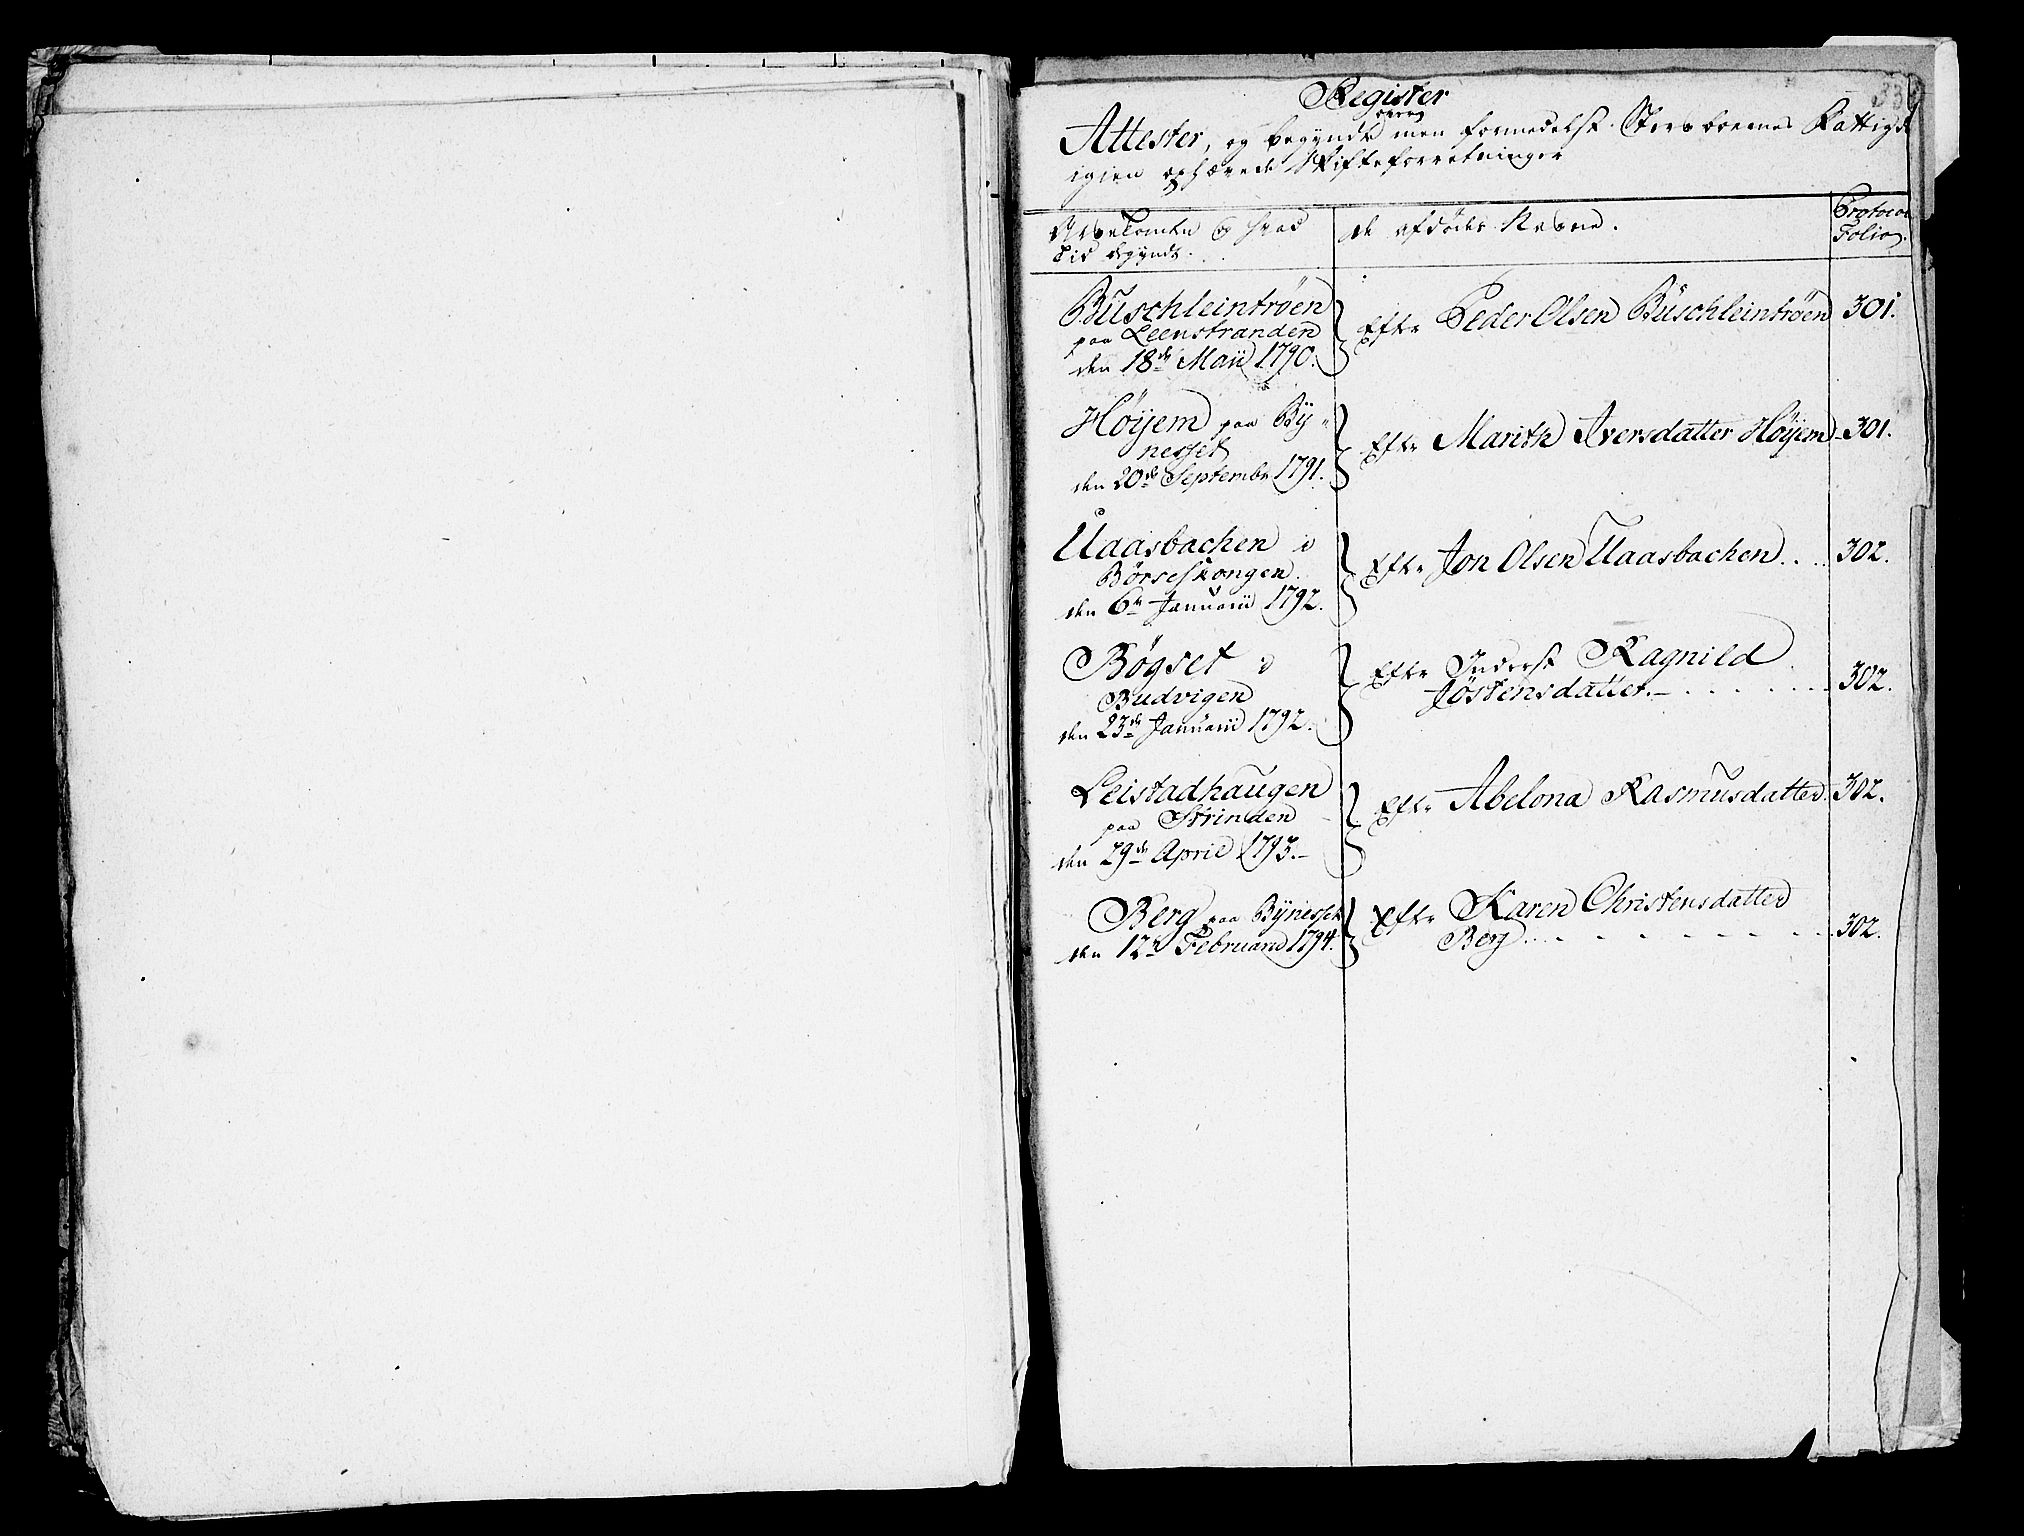 33
Register
over
Attester, og begyndte men formedelst Sterboernes Fattigd
igien ophævede Skifteforretninger
og hvad
Tid begyndt.
de afdødes Navne.
Protocol
Folio.
Buschleintrøen
paa Leenstranden
den 18de Maii 1790.
Efter Peder Olsen Buschleintrøen
301.
Høyem paa By-
nesset
den 20de Septembr 1791.
Efter Marith Iversdatter Høyem
301.
Uaasbachen i
Børseskongen
den 6te Januarii 1792.
Efter Jon Olsen Uaasbachen....
302.
Bøgset i
Budvigen
den 23de Januarii 1792.
Efter Inderst Ragnild
Jøstensdatter.
302.
Leistadhaugen
paa Strinden
den 29de April 1793.
Efter Abelona Rasmusdatter
302.
Berg paa Bynesset
den 12te Februarii 1794.
Efter Karen Christensdatter
Berg
302.